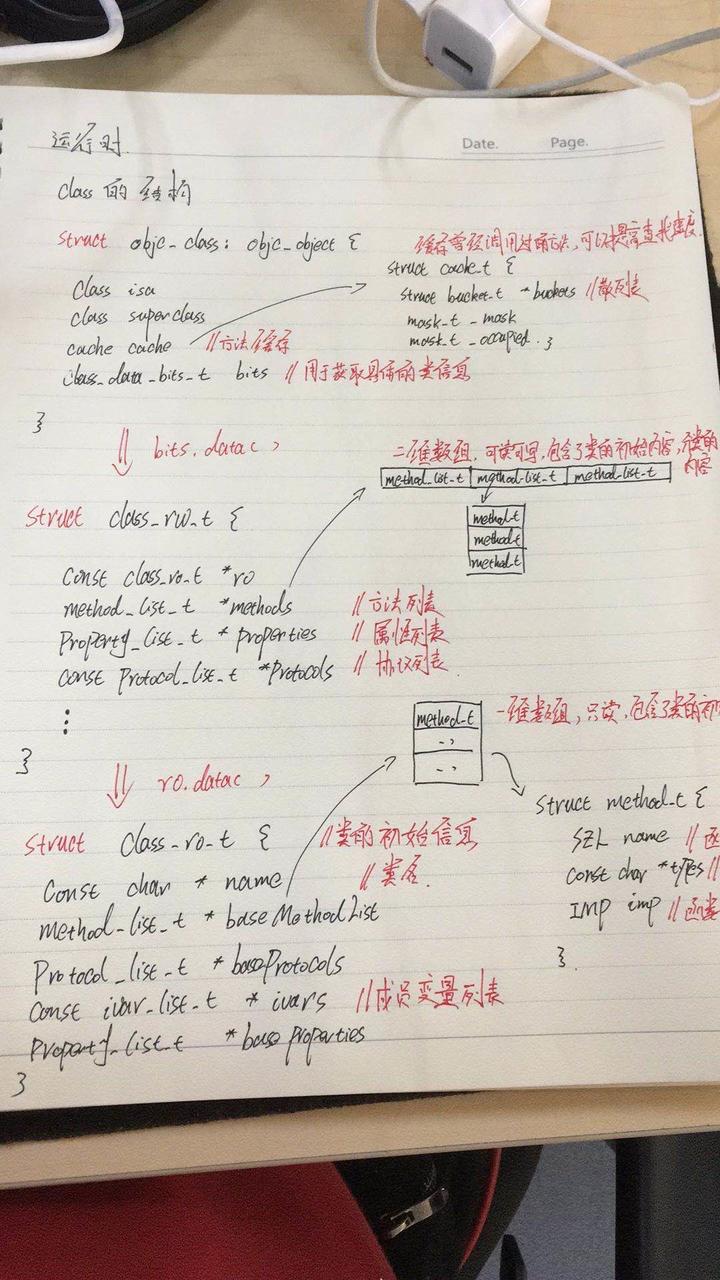 运行时
Date. Page.
class 的结构
struct objc_class: objc_object {
class isa
class superclass
cache cache //方法缓存
class_data_bits_t bits //用于获取具体的类信息
}
缓存曾经调用过的方法,可以提高查找速度
struct cache_t {
struct bucket_t *buckets //散列表
mask_t _mask
mask_t _occupied. }
bits.data()
struct class_rw_t {
const class_ro_t *ro
method_list_t *methods //方法列表
Property_list_t * properties //属性列表
const Protocol_list_t *Protocols //协议列表
⋮
}
二维数组,可读可写,包含了类的初始内容,分类的
内容
method_list_t method_list_t method_list_t
method_t
method_t
method_t
ro.data()
struct class_ro_t { //类的初始信息
const char * name //类名.
method_list_t * baseMethodList
Protocol_list_t *baseProtocols
const ivar_list_t * ivars //成员变量列表
Property_list_t *baseproperties
}
一维数组,只读,包含了类的初
method_t
struct method_t {
SEL name //函
const char *types //
IMP imp //函数
}.